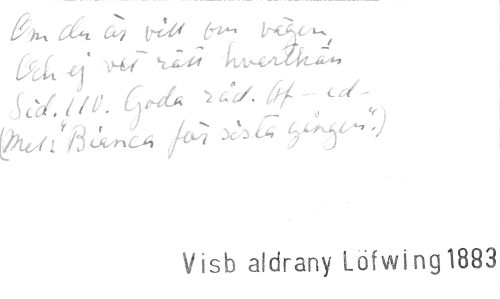 Om du är vill om vägen,
Och ej vet rätt hvarthän
Sid. 110. Goda råd. Af -ed-
(Mel: "Bianca för sista gången".)
Visb aldrany Löfwing 1883